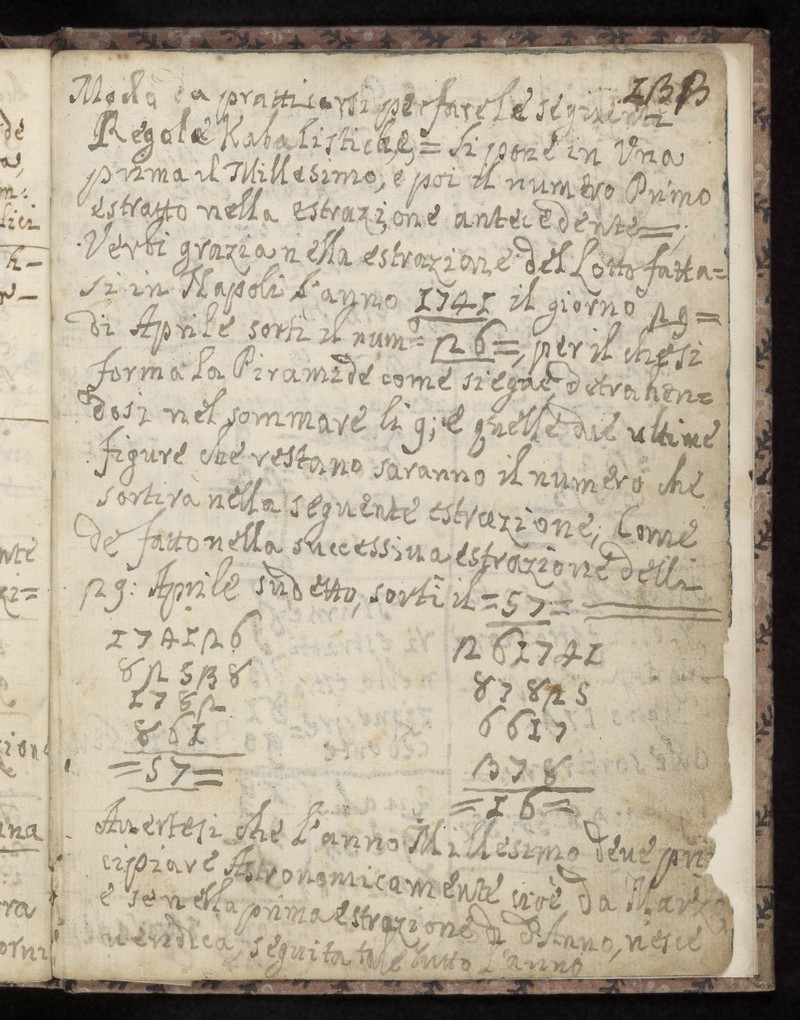 133
Modo da pratticarsi per fare le seguenti
Regole Kabalistiche, = Si pone in Una
prima il Millesimo, e poi il numero Primo
estratto nella estrazione antecedente=;
Verbi grazia nella estrazione del Lotto fatta=
si in Napoli l'anno 1741 il giorno 29=
di Aprile sortì il num.º 26=, per il che si
forma la Piramide come siegue, detrahen=
dosi nel sommare li 9; e quelle due ultime
figure che restano saranno il numero che
sortirà nella seguente estrazione; Come
de fatto nella successiva estrazione delli
29: Aprile sudetto, sortì il =57=
174126
82538
1782
861
=57=
261741
87825
6617
378
=16=
Avertesi che l'anno Millesimo deve prin
cipiare Astronomicamente cioè da Marzo
e se nella prima estrazione di d'Anno, riesce
veridica seguita tale tutto l'anno